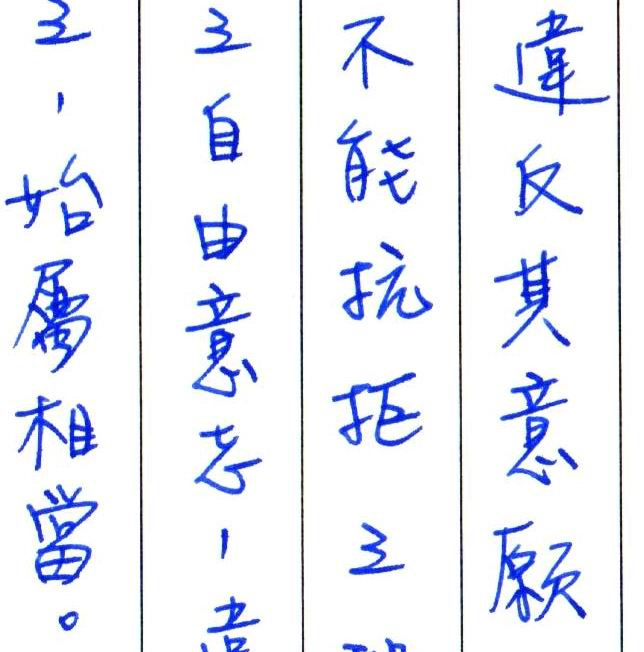 違反其意願
不能抗拒之
之自由意志，違
之，始屬相當。